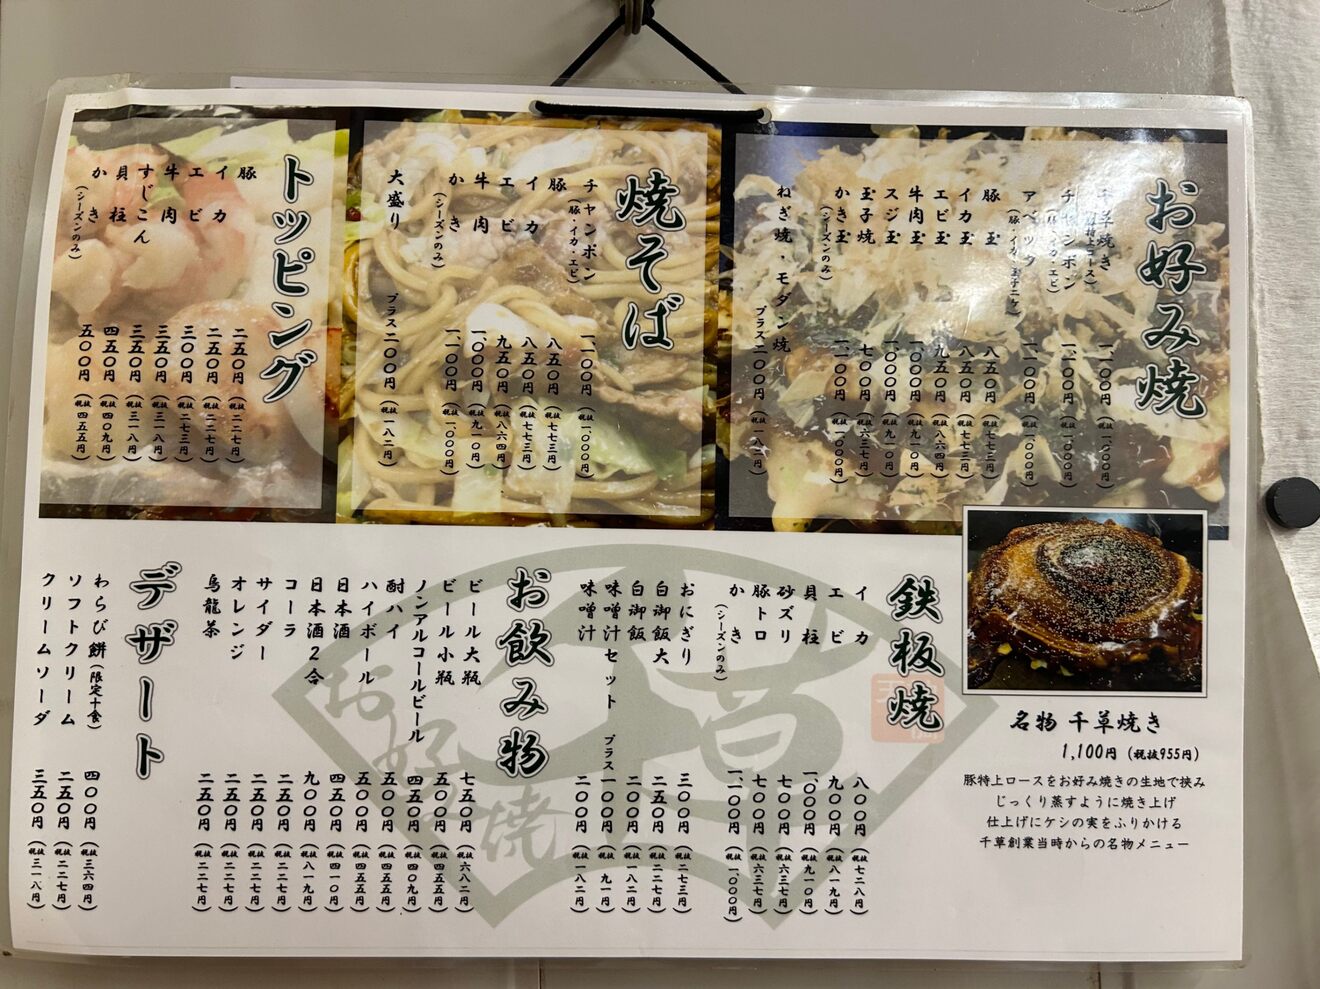 お好み焼
千草焼き
(豚特上ロース)
一、一〇〇円(税抜一、〇〇〇円)
チャンポン
(豚・イカ・エビ)
一、一〇〇円(税抜一、〇〇〇円)
アベック
一、一〇〇円(税抜一、〇〇〇円)
豚玉 八五〇円(税抜七七三円)
イカ玉 八五〇円(税抜七七三円)
エビ玉 九五〇円(税抜八六四円)
牛肉玉 一、〇〇〇円(税抜九一〇円)
スジ玉 一、〇〇〇円(税抜九一〇円)
玉子焼 七〇〇円(税抜六三七円)
かき玉
(シーズンのみ)
一、一〇〇円(税抜一、〇〇〇円)
ねぎ焼・モダン焼 プラス二〇〇円(税抜一八二円)
焼そば
チャンポン
(豚・イカ・エビ)
一、一〇〇円(税抜一、〇〇〇円)
豚 八五〇円(税抜七七三円)
イカ 八五〇円(税抜七七三円)
エビ 九五〇円(税抜八六四円)
牛肉 一、〇〇〇円(税抜九一〇円)
かき
(シーズンのみ)
一、一〇〇円(税抜一、〇〇〇円)
大盛り プラス二〇〇円(税抜一八二円)
トッピング
豚 二五〇円(税抜二二七円)
イカ 二五〇円(税抜二二七円)
エビ 三〇〇円(税抜二七三円)
牛肉 三五〇円(税抜三一八円)
すじこん 三五〇円(税抜三一八円)
貝柱 四五〇円(税抜四〇九円)
かき
(シーズンのみ)
五〇〇円(税抜四五五円)
名物 千草焼き
1,100円(税抜955円)
豚特上ロースをお好み焼きの生地で挟み
じっくり蒸すように焼き上げ
仕上げにケシの実をふりかける
千草創業当時からの名物メニュー
鉄板焼
イカ 八〇〇円(税抜七二八円)
エビ 九〇〇円(税抜八一九円)
貝柱 一、〇〇〇円(税抜九一〇円)
砂ズリ 七〇〇円(税抜六三七円)
豚トロ 七〇〇円(税抜六三七円)
かき
(シーズンのみ)
一、一〇〇円(税抜一、〇〇〇円)
おにぎり 三〇〇円(税抜二七三円)
白御飯大 二五〇円(税抜二二七円)
白御飯 二〇〇円(税抜一八二円)
味噌汁セット プラス一〇〇円(税抜九一円)
味噌汁 二〇〇円(税抜一八二円)
お飲み物
ビール大瓶 七五〇円(税抜六八二円)
ビール小瓶 五〇〇円(税抜四五五円)
ノンアルコールビール 四五〇円(税抜四〇九円)
酎ハイ 五〇〇円(税抜四五五円)
ハイボール 五〇〇円(税抜四五五円)
日本酒 四五〇円(税抜四一〇円)
日本酒2合 九〇〇円(税抜八一九円)
コーラ 二五〇円(税抜二二七円)
サイダー 二五〇円(税抜二二七円)
オレンジ 二五〇円(税抜二二七円)
烏龍茶 二五〇円(税抜二二七円)
デザート
わらび餅(限定十食) 四〇〇円(税抜三六四円)
ソフトクリーム 二五〇円(税抜二二七円)
クリームソーダ 三五〇円(税抜三一八円)
千草
お好み焼